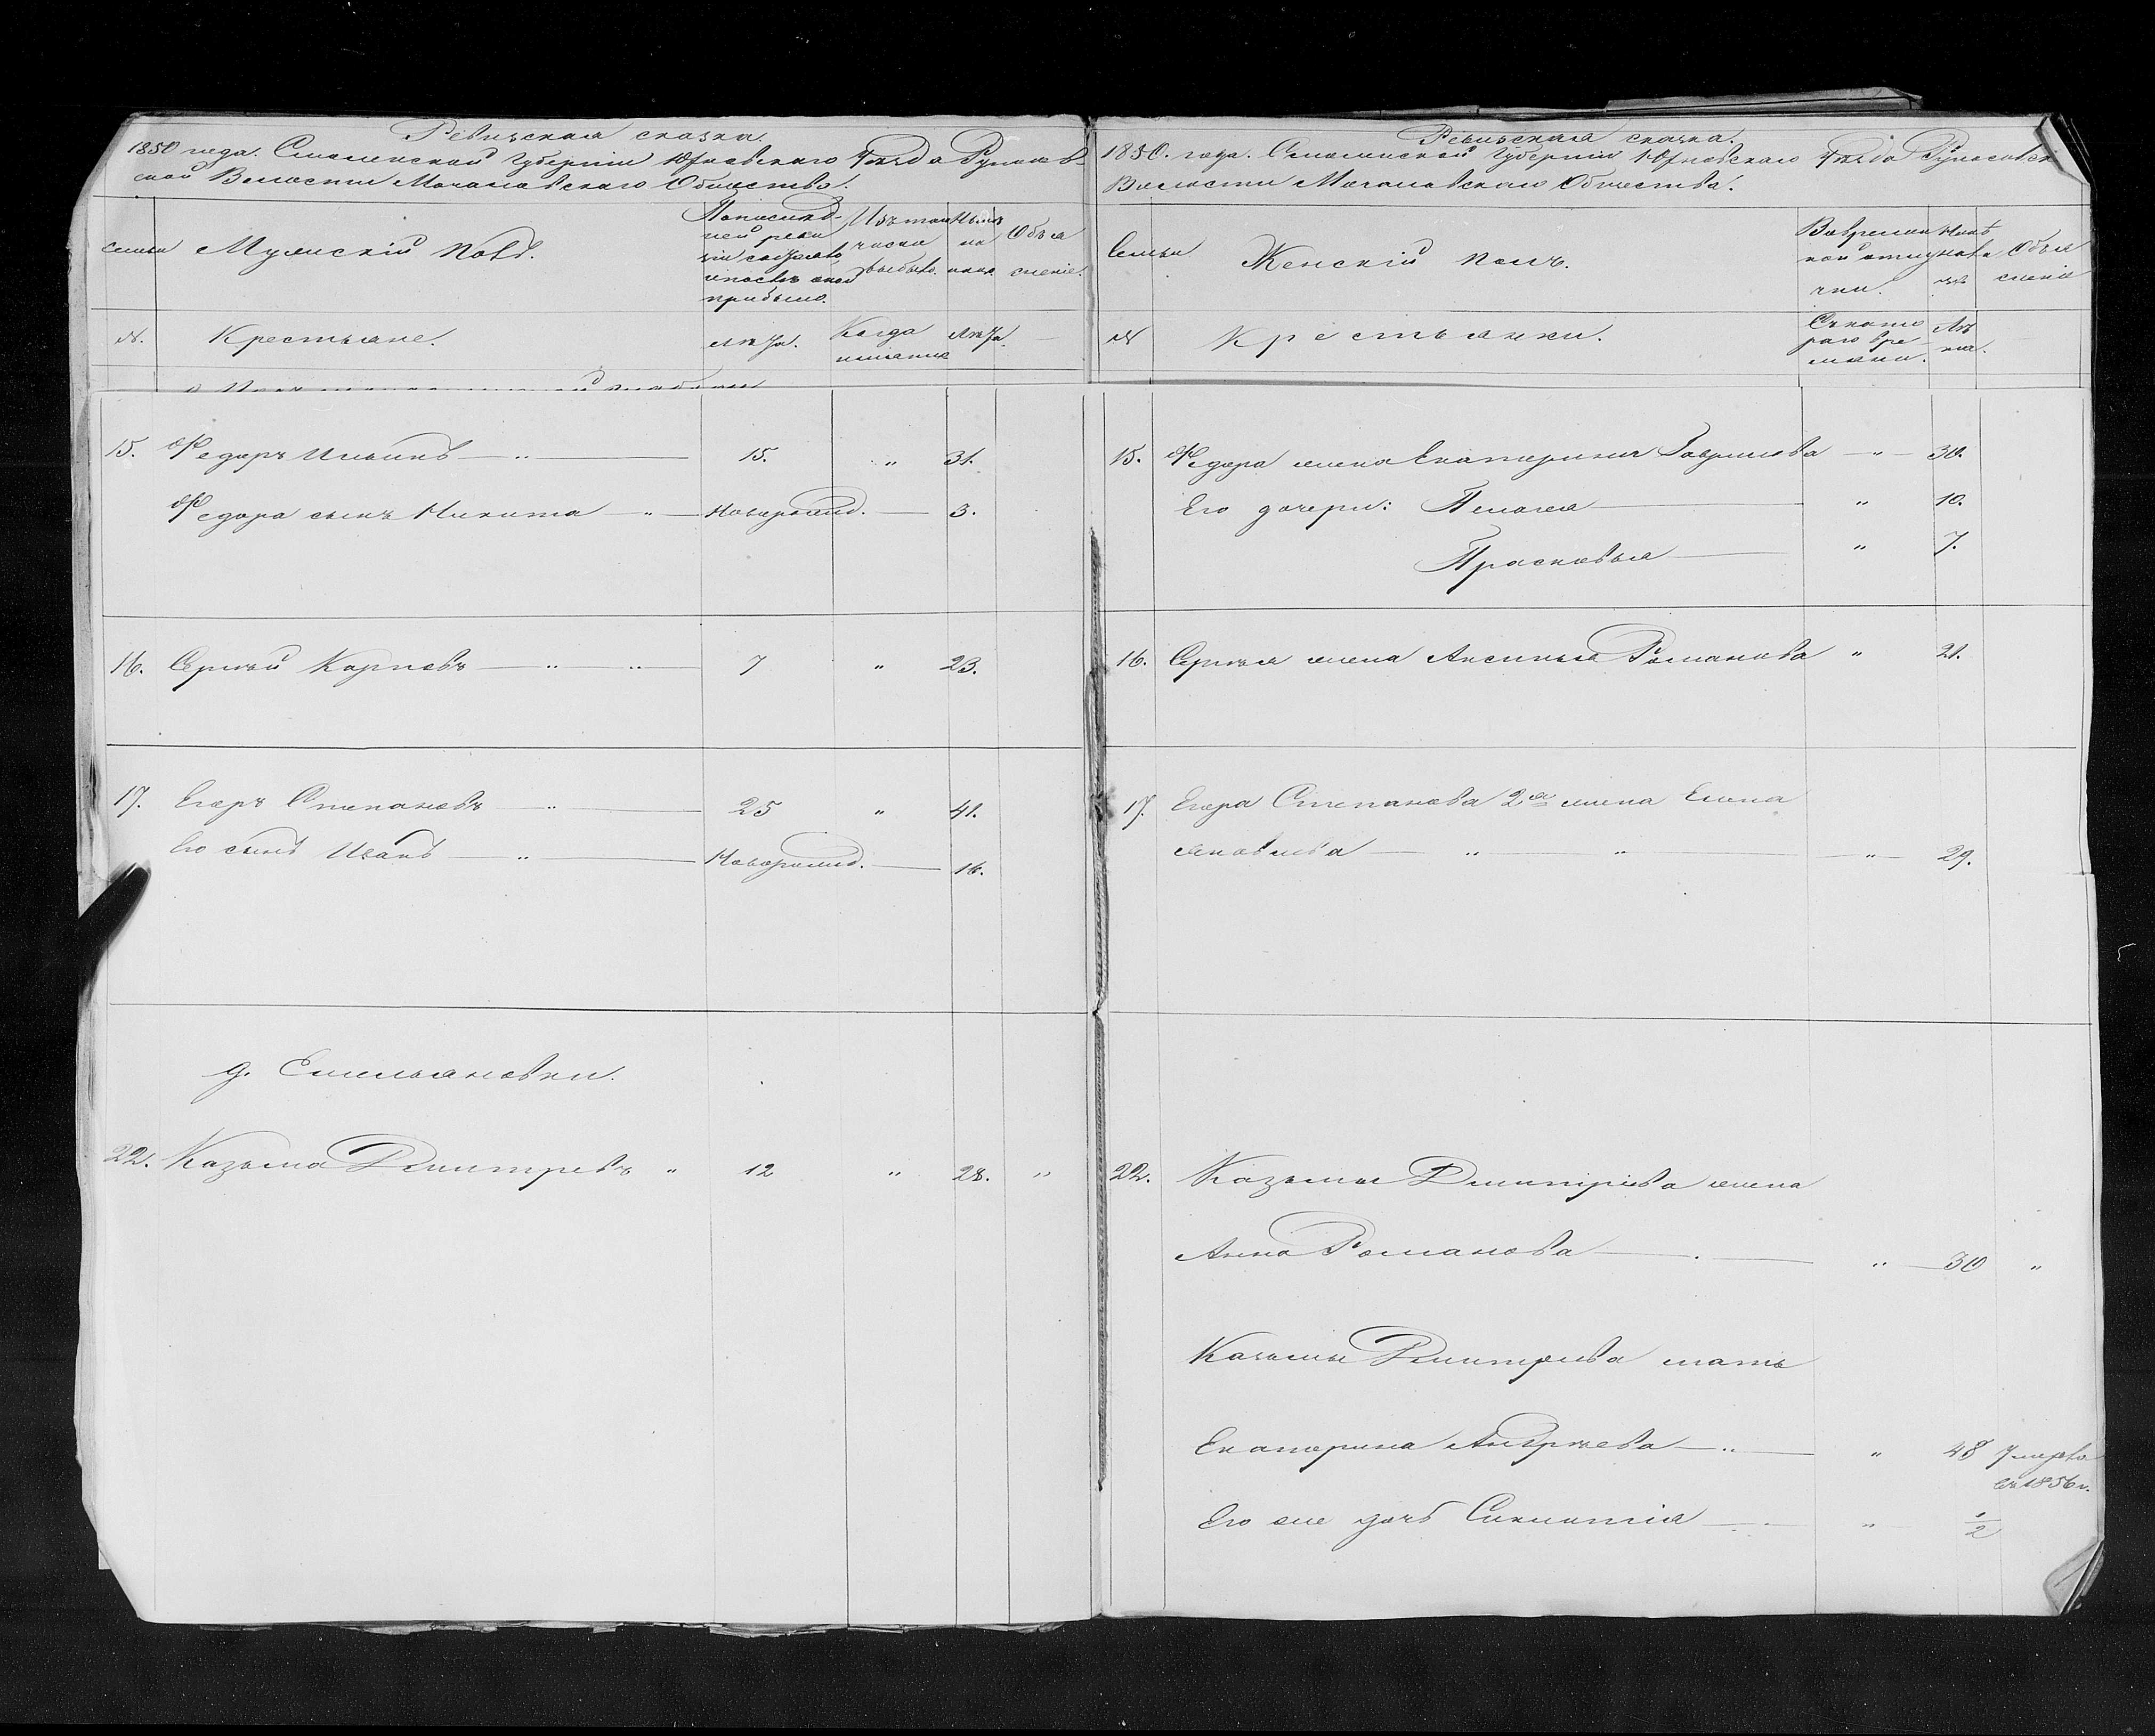 Ревизская сказка
1850 года. Смоленской Губернии Юхновскаго Уѣзда Руновской Волости Мочаловскаго Общества.
семьи
Мужескій Полъ.
По последней ревизіи состояло и послѣ оной прибыло.
Изъ того числа выбыло.
Нынѣ на лицо
Объясненіе.
№.
Крестьяне.
лѣта.
Когда имянно
лѣта.
15. Федоръ Ильинъ — „ — 15. „ 31.
Федора сынъ Никита — „ — Новорожд. — 3.
16. Сергѣй Карповъ — „ „ — 7 „ 23.
17. Егоръ Степановъ — „ — 25 „ 41.
Его сынъ Иванъ — „ — Новорожд. — 16.
д. Емельяновки.
22. Казьма Дмитревъ „ 12 „ 28. „
Ревизская сказка.
1850. года. Смоленской Губернии Юхновскаго Уѣзда
Волости Мочаловскаго Общества.
Семьи
Женскій полъ.
Во временной отлучки.
Нынѣ на лицо
Объясненіе
№
Крестьянки.
Съ котораго времени.
Лѣта.
15. Федора жена Екатерина Гаврилова — „ — 30.
Его дочери: Пелагея — „ 10.
Прасковья — „ 7.
16. Сергѣя жена Аксинья Романова „ 21.
17. Егора Степанова 2я жена Елена
Яковлева — „ — „ — „ — 29.
22. Казьмы Дмитріева жена
Анна Романова — „ — 30 „
Казьмы Дмитріева мать
Екатерина Андрѣева — „ — „ 48 Умерла
въ 1856 г.
Его же дочь — „ 1/2